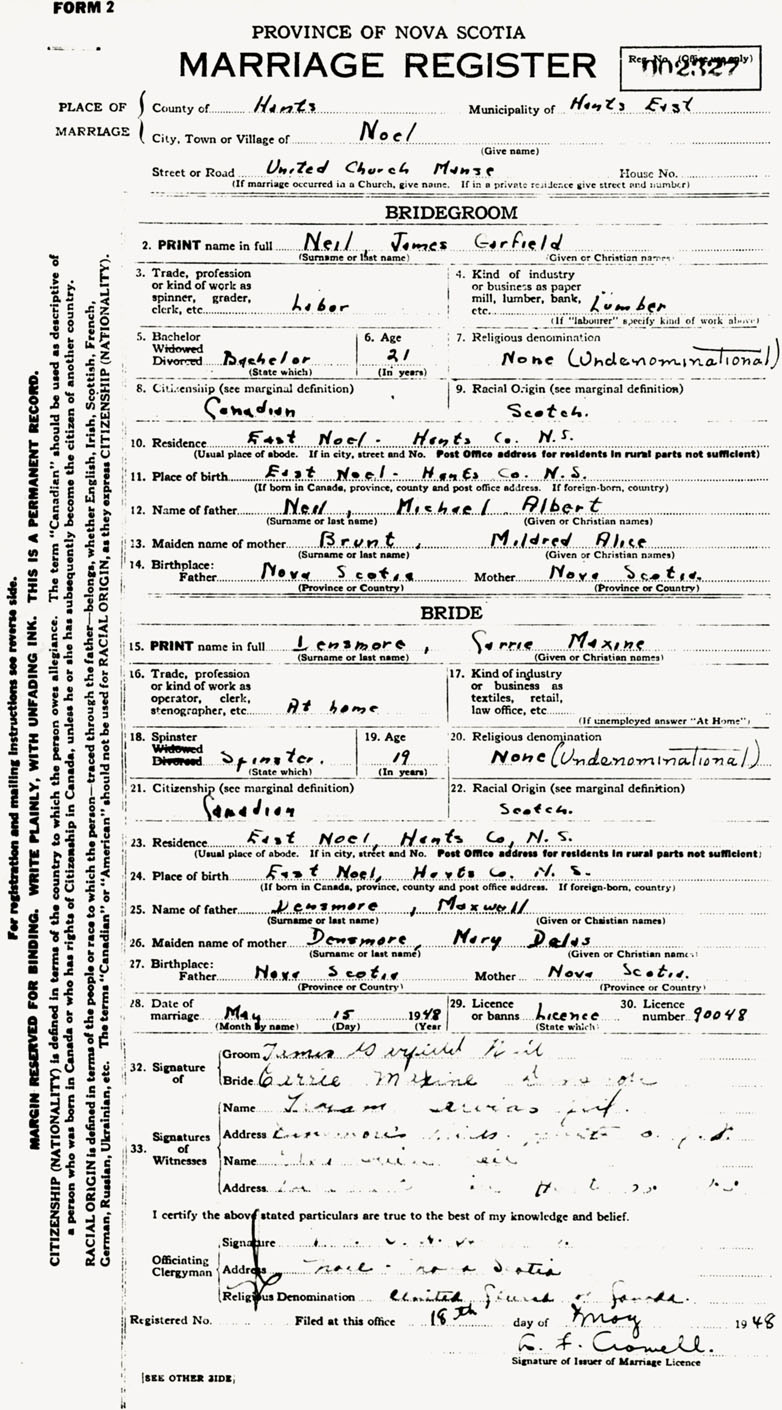 FORM 2
PROVINCE OF NOVA SCOTIA
MARRIAGE REGISTER
Reg. No. (Office use only)
002327
PLACE OF MARRIAGE
County of Hants Municipality of Hants East
City, Town or Village of Noel
(Give name)
Street or Road United Church Manse House No.
(If marriage occurred in a Church, give name. If in a private residence give street and number)
BRIDEGROOM
2. PRINT name in full Neil, James Garfield
(Surname or last name) (Given or Christian names)
3. Trade, profession or kind of work as spinner, grader, clerk, etc. Labor
4. Kind of industry or business as paper mill, lumber, bank, etc. Lumber
(If "labourer" specify kind of work above)
5. Bachelor Widowed Divorced Bachelor
(State which)
6. Age 21
(In years)
7. Religious denomination
None (Undenominational)
8. Citizenship (see marginal definition)
Canadian
9. Racial Origin (see marginal definition)
Scotch.
10. Residence East Noel - Hants Co. N.S.
(Usual place of abode. If in city, street and No. Post Office address for residents in rural parts not sufficient)
11. Place of birth East Noel - Hants Co. N.S.
(If born in Canada, province, county and post office address. If foreign-born, country)
12. Name of father Neil, Michael Albert
(Surname or last name) (Given or Christian names)
13. Maiden name of mother Brunt, Mildred Alice
(Surname or last name) (Given or Christian names)
14. Birthplace: Father Nova Scotia Mother Nova Scotia.
(Province or Country) (Province or Country)
BRIDE
15. PRINT name in full Densmore, Carrie Maxine
(Surname or last name) (Given or Christian names)
16. Trade, profession or kind of work as operator, clerk, stenographer, etc. At home
17. Kind of industry or business as textiles, retail, law office, etc
(If unemployed answer "At Home")
18. Spinster Widowed Divorced Spinster.
(State which)
19. Age 19
(In years)
20. Religious denomination
None (Undenominational)
21. Citizenship (see marginal definition)
Canadian
22. Racial Origin (see marginal definition)
Scotch.
23. Residence East Noel, Hants Co, N.S.
(Usual place of abode. If in city, street and No. Post Office address for residents in rural parts not sufficient)
24. Place of birth East Noel, Hants Co. N.S.
(If born in Canada, province, county and post office address. If foreign-born, country)
25. Name of father Densmore, Maxwell
(Surname or last name) (Given or Christian names)
26. Maiden name of mother Densmore, Mary
(Surname or last name) (Given or Christian names)
27. Birthplace: Father Nova Scotia Mother Nova Scotia.
(Province or Country) (Province or Country)
28. Date of marriage May 15 1948
(Month by name) (Day) (Year)
29. Licence or banns Licence
(State which)
30. Licence number 90048
32. Signature of
Groom James Garfield Neil
Bride Carrie Maxine
33. Signatures of Witnesses
Name
Address
Name
Address
I certify the above stated particulars are true to the best of my knowledge and belief.
Officiating Clergyman
Signature
Address Noel - Nova Scotia
Religious Denomination United Church of Canada.
Registered No. Filed at this office 18th day of May 1948
Crowell.
Signature of Issuer of Marriage Licence
[SEE OTHER SIDE]
For registration and mailing instructions see reverse side.
MARGIN RESERVED FOR BINDING. WRITE PLAINLY, WITH UNFADING INK. THIS IS A PERMANENT RECORD.
CITIZENSHIP (NATIONALITY) is defined in terms of the country to which the person owes allegiance. The term "Canadian" should be used as descriptive of
a person who was born in Canada or who has rights of Citizenship in Canada, unless he or she has subsequently become the citizen of another country.
RACIAL ORIGIN is defined in terms of the people or race to which the person—traced through the father—belongs, whether English, Irish, Scottish, French,
German, Russian, Ukrainian, etc. The terms "Canadian" or "American" should not be used for RACIAL ORIGIN, as they express CITIZENSHIP (NATIONALITY).